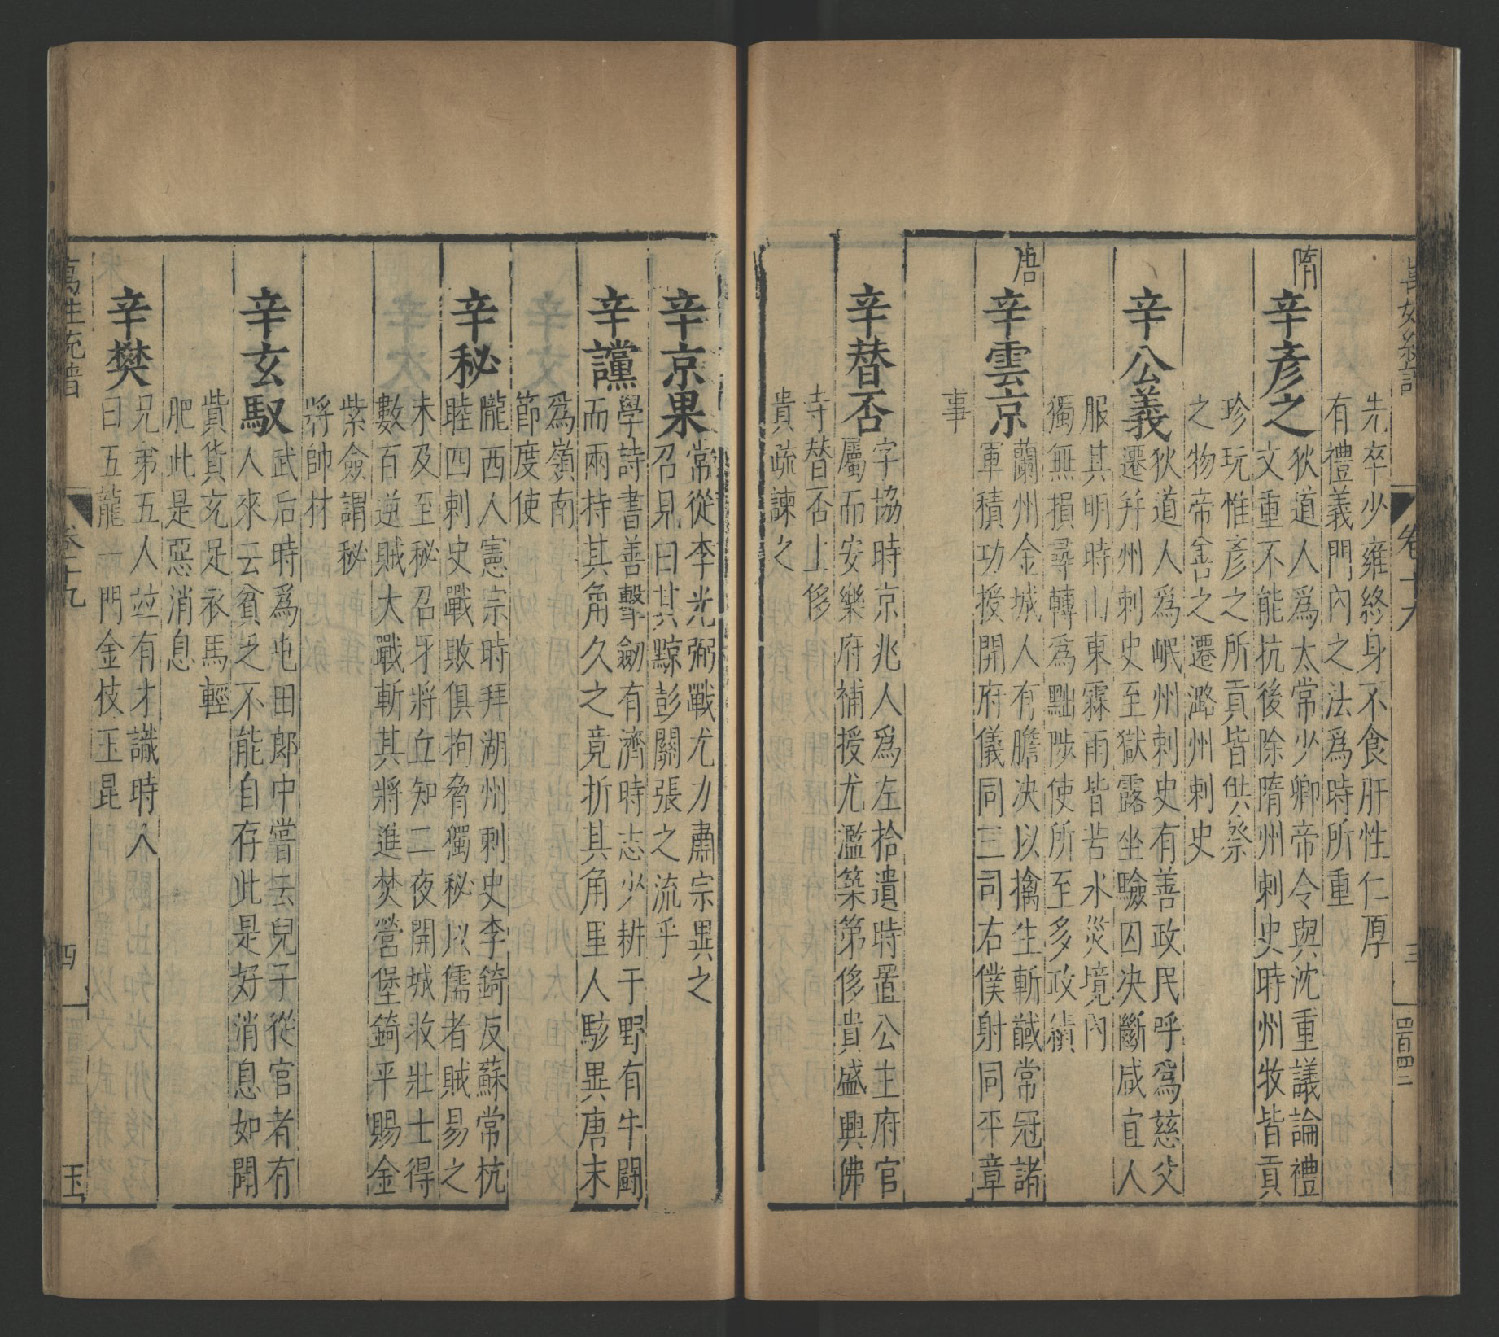 先卒少雍終身不食肝性仁厚
有禮義門內之法爲時所重
隋
辛彥之狄道人爲太常少卿帝令與沈重議論禮
文重不能抗後除隋州刺史時州牧皆貢
珍玩惟彥之所貢皆供祭
之物帝善之遷潞州刺史
辛公義狄道人爲岷州刺史有善政民呼爲慈父
遷并州刺史至獄露坐驗囚決斷咸宜人
服其明時山東霖雨皆苦水災境內
獨無損尋轉爲黜陟使所至多政績
唐
辛雲京蘭州金城人有膽决以擒生斬馘常冠諸
軍積功授開府儀同三司右僕射同平章
事
辛替否字協時京兆人爲左拾遺時置公主府官
屬而安樂府補授尤濫築第侈貴盛興佛
寺替否上修
貴疏諫之
辛京杲常從李光弼戰尤力肅宗異之
召見曰其黥彭關張之流乎
辛讜學詩書善擊劒有濟時志少耕于野有牛鬪
而兩持其角久之竟折其角里人駭異唐末
爲嶺南
節度使
辛秘隴西人憲宗時拜湖州刺史李錡反蘇常杭
睦四刺史戰敗俱拘脅獨秘以儒者賊易之
未及至秘召牙將丘知二夜開城收壯士得
數百逆賊大戰斬其將進焚營堡錡平賜金
紫僉謂秘
將帥材
辛玄馭武后時爲屯田郎中嘗云兒子從官者有
人來云貧乏不能自存此是好消息如聞
貲貨充足衣馬輕
肥此是惡消息
辛樊兄弟五人並有才識時人
曰五龍一門金枝玉昆
萬姓統譜
卷十九
四